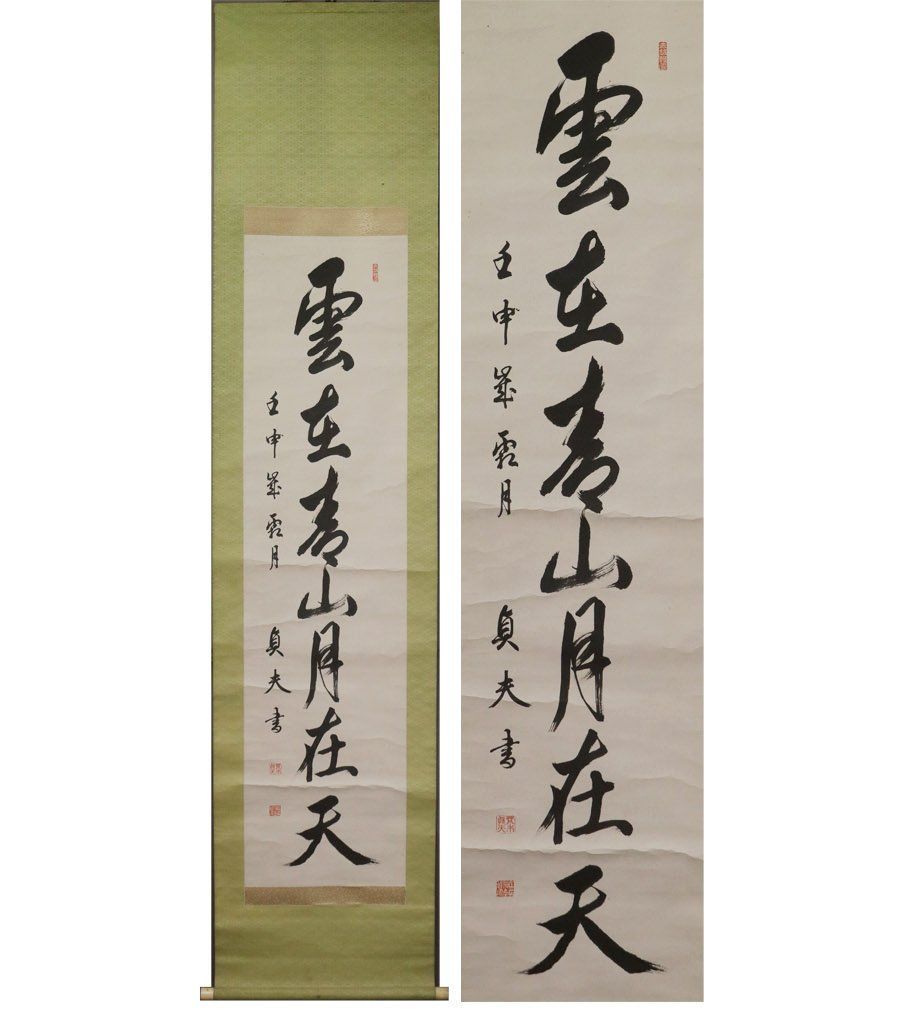 雲在青山月在天
壬申歳霜月 貞夫書
雲在青山月在天
壬申歳霜月 貞夫書